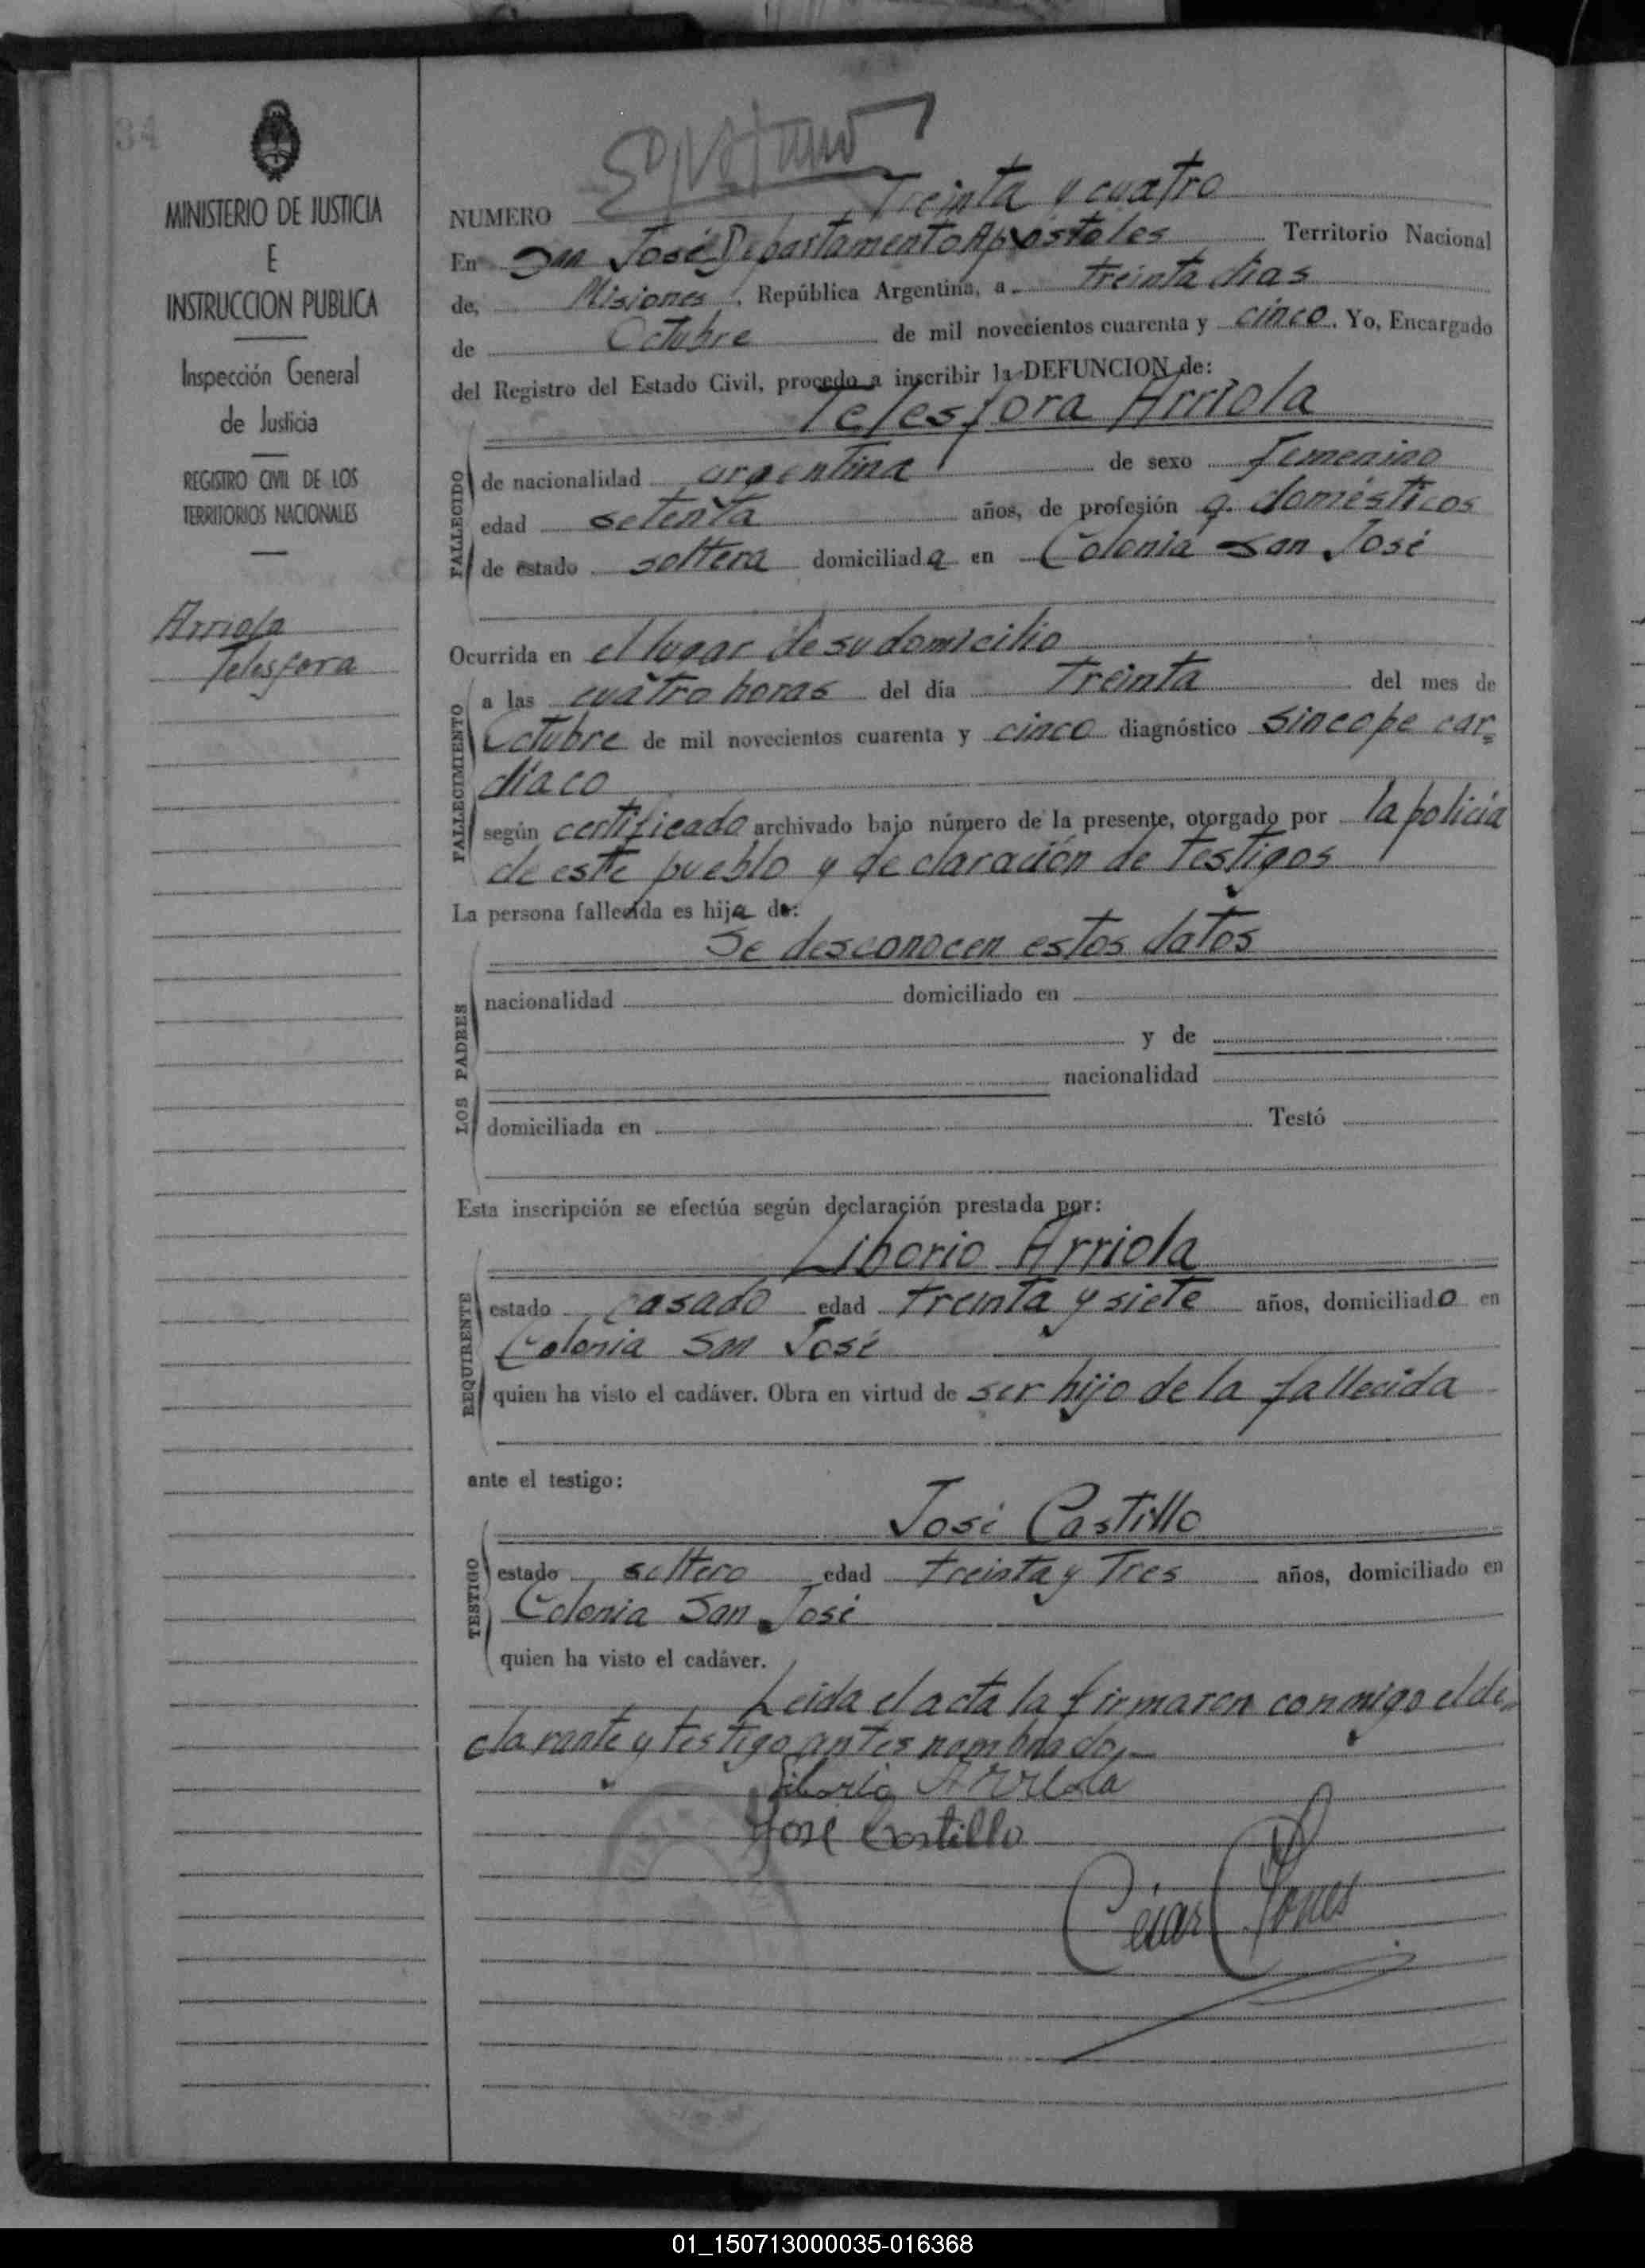 34
MINISTERIO DE JUSTICIA
E
INSTRUCCION PUBLICA
Inspección General
de Justicia
REGISTRO CIVIL DE LOS
TERRITORIOS NACIONALES
Arriola
Telesfora
NUMERO Treinta y cuatro
En San José Departamento Apóstoles Territorio Nacional
de, Misiones, República Argentina, a treinta dias
de Octubre de mil novecientos cuarenta y cinco. Yo, Encargado
del Registro del Estado Civil, procedo a inscribir la DEFUNCION de:
Telesfora Arriola
FALLECIDO
de nacionalidad argentina de sexo femenino
edad setenta años, de profesión q. domésticos
de estado soltera domiciliada en Colonia San José
Ocurrida en el lugar de su domicilio
FALLECIMIENTO
a las cuatro horas del día treinta del mes de
Octubre de mil novecientos cuarenta y cinco diagnóstico sincope car=
díaco
según certificado archivado bajo número de la presente, otorgado por la policía
de este pueblo y declaración de testigos
La persona fallecida es hija de:
Se desconocen estos datos
LOS PADRES
nacionalidad domiciliado en
y de
nacionalidad
domiciliada en Testó
Esta inscripción se efectúa según declaración prestada por:
Liborio Arriola
REQUIRENTE
estado casado edad treinta y siete años, domiciliado en
Colonia San José
quien ha visto el cadáver. Obra en virtud de ser hijo de la fallecida
ante el testigo:
José Castillo
TESTIGO
estado soltero edad treinta y tres años, domiciliado en
Colonia San José
quien ha visto el cadáver.
Leida el acta la firmaron conmigo el de-
clarante y testigo antes nombrado.-
Liborio Arriola
José Castillo
César
01_150713000035-016368